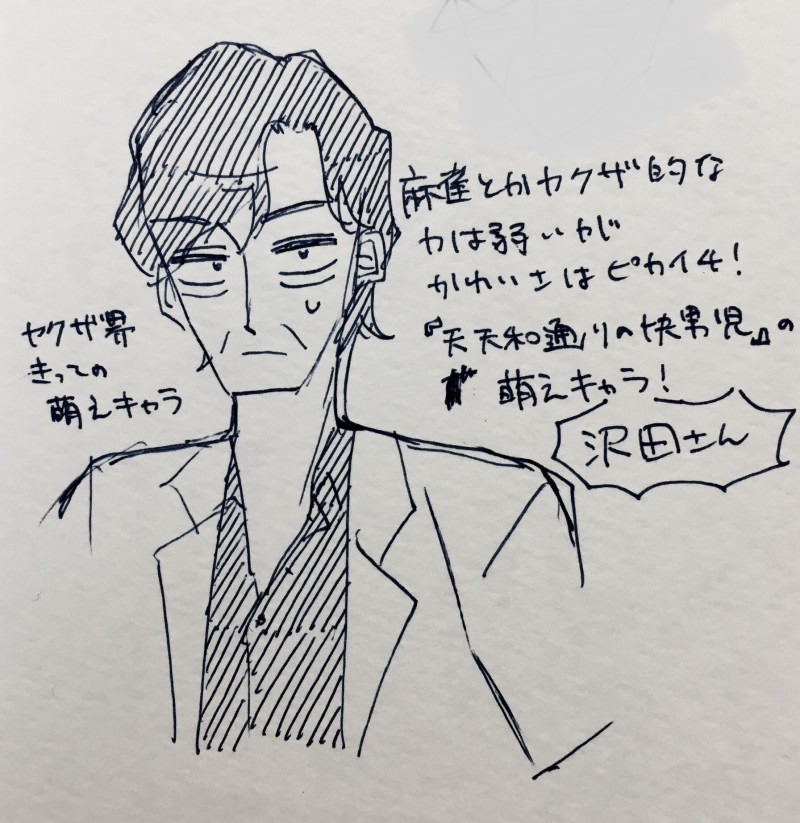 麻雀とかヤクザ的な
力は弱いが
かわいさはピカイチ!
『天天和通りの快男児』の
萌えキャラ!
沢田さん
ヤクザ界
きっての
萌えキャラ